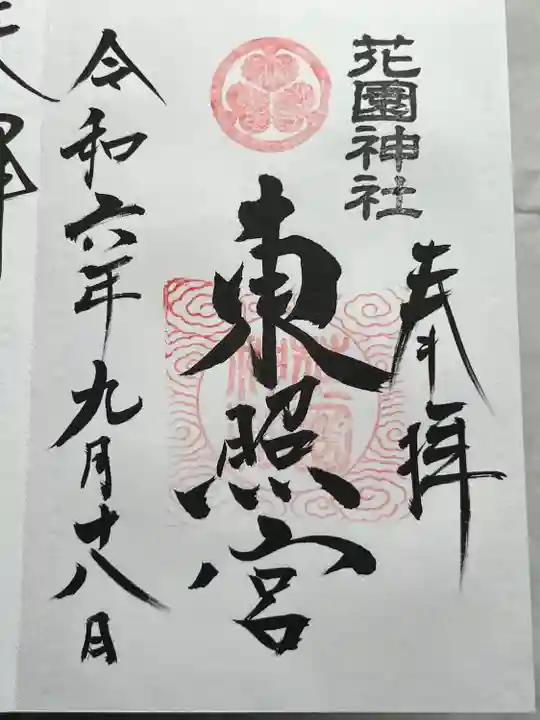 奉拝
花園神社
東照宮
令和六年九月十八日